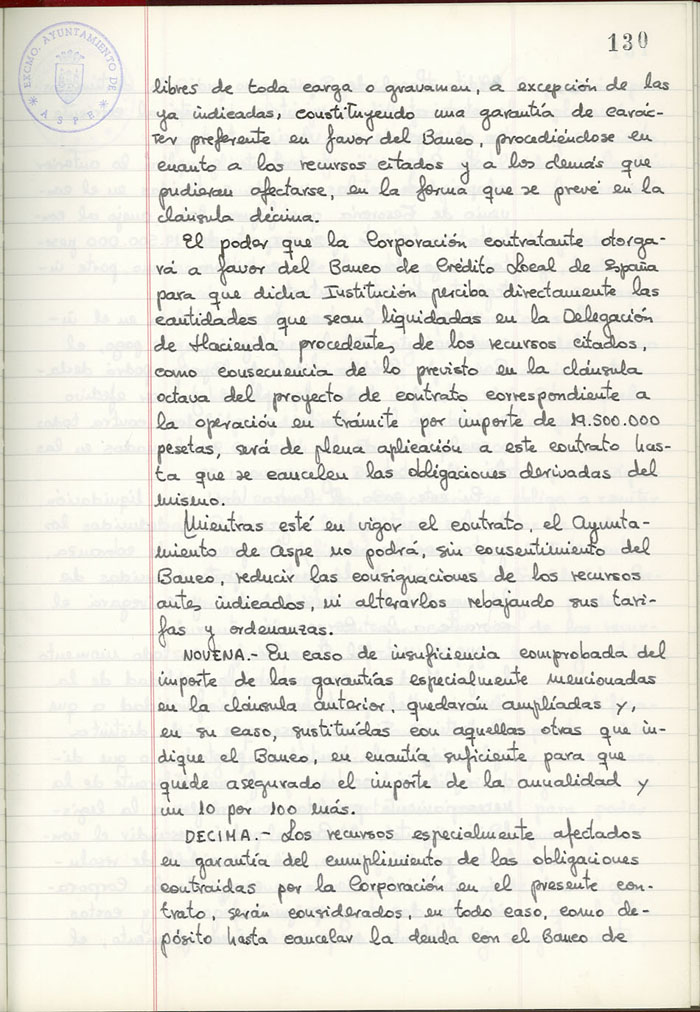 130
EXCMO. AYUNTAMIENTO DE
* ASPE *
libres de toda carga o gravamen, a excepción de las
ya indicadas, constituyendo una garantía de carác-
ter preferente en favor del Banco, procediéndose en
cuanto a los recursos citados y a los demás que
pudieran afectarse, en la forma que se prevé en la
cláusula décima.
El poder que la Corporación contratante otorga-
rá a favor del Banco de Crédito Local de España
para que dicha Institución perciba directamente las
cantidades que sean liquidadas en la Delegación
de Hacienda procedentes de los recursos citados,
como consecuencia de lo previsto en la cláusula
octava del proyecto de contrato correspondiente a
la operación en trámite por importe de 19.500.000
pesetas, será de plena aplicación a este contrato has-
ta que se cancelen las obligaciones derivadas del
mismo.
Mientras esté en vigor el contrato, el Ayunta-
miento de Aspe no podrá, sin consentimiento del
Banco, reducir las consignaciones de los recursos
antes indicados, ni alterarlos rebajando sus tari-
fas y ordenanzas.
NOVENA.- En caso de insuficiencia comprobada del
importe de las garantías especialmente mencionadas
en la cláusula anterior, quedarán ampliadas y,
en su caso, sustituídas con aquellas otras que in-
dique el Banco, en cuantía suficiente para que
quede asegurado el importe de la anualidad y
un 10 por 100 más.
DECIMA.- Los recursos especialmente afectados
en garantía del cumplimiento de las obligaciones
contraidas por la Corporación en el presente con-
trato, serán considerados, en todo caso, como de-
pósito hasta cancelar la deuda con el Banco de